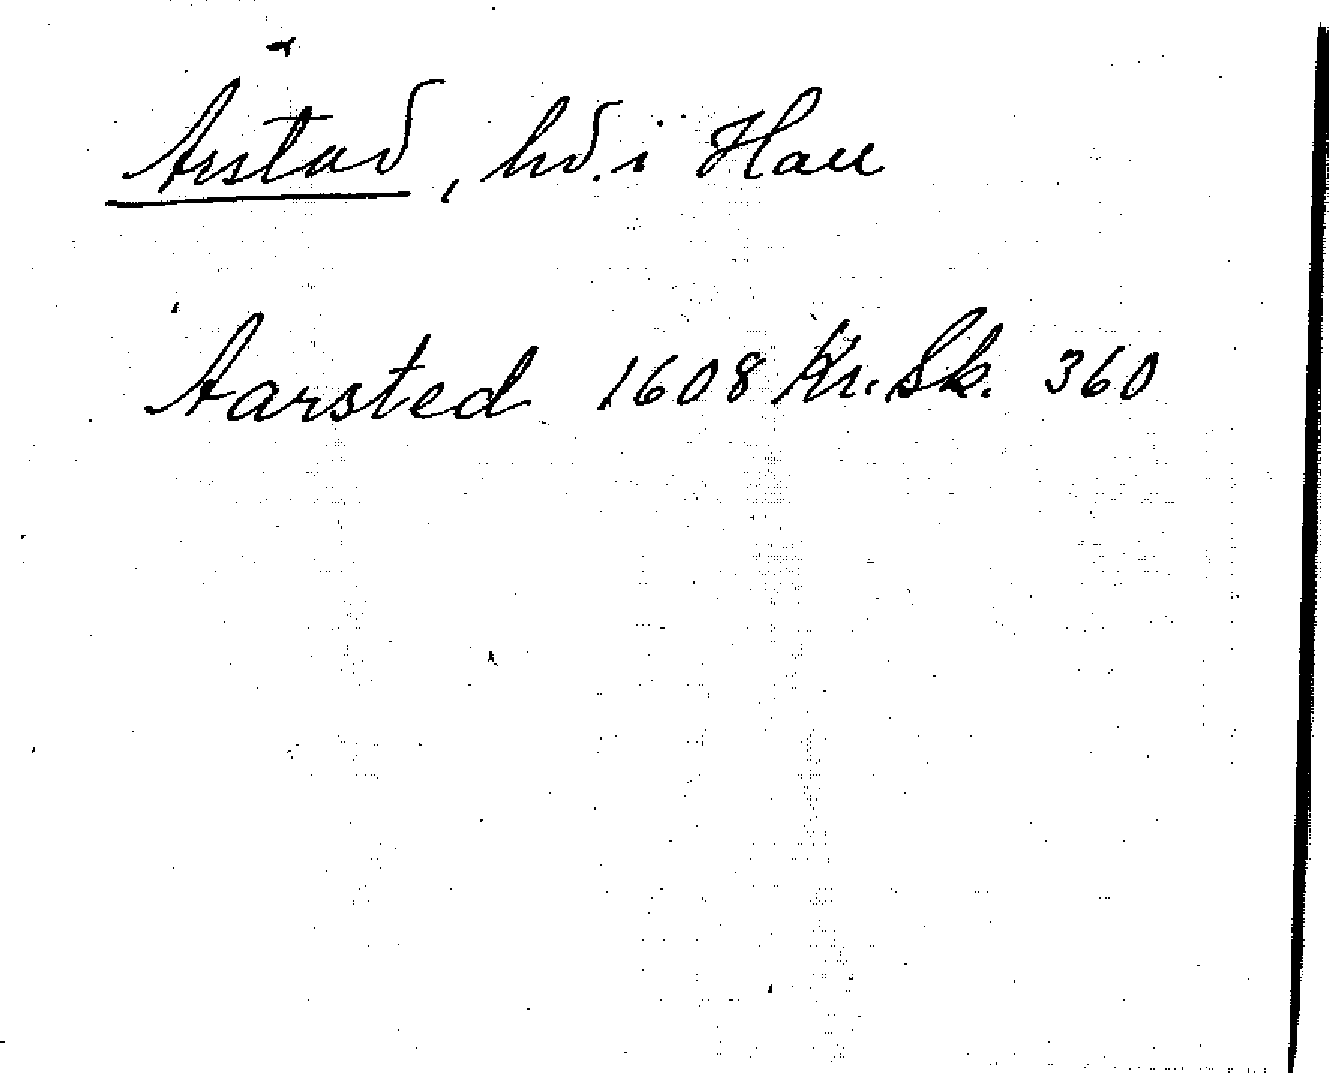 Årstad, hd. i Hall
Aarsted 1608 Kr. Sk. 360